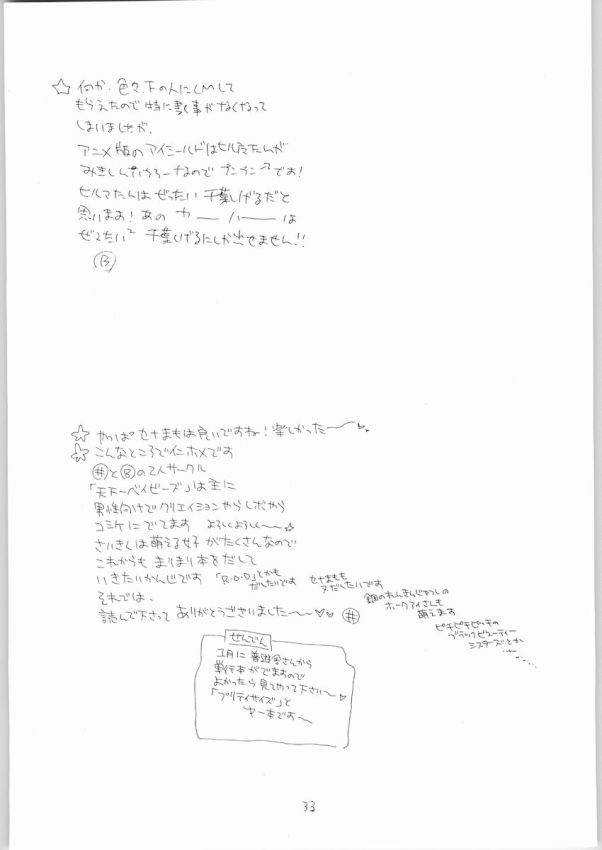 ☆ 何か、色々、下の人にCMして
もらえたので 特に書く事がなくなって
しまいましたが、
アニメ版のアイシールドはヒル魔たんが
なので プンプン です!
ヒルマたんは ぜったい 千葉しげるだと
思います! あの ヤー ハー は
ぜったい² 千葉しげるにしか出せません!!
B
☆ やっぱ セナまもは良いですね! 楽しかったー
☆ こんなところで イホメです
#と⑧の2人サークル
「天下一ベイビーズ」は主に
男性向けで クリエイションやら レボやら
コミケに でてます よろしくよろしく〜☆
さいきんは萌える女子 がたくさんなので
これからも まりまり本をだして
いきたいかんじです 「R.O.D」とかも
だしたいです セナまもも
まだしたいです
それでは、
鋼のれんきんじゅつしの
ホークアイさんも
萌えます
読んで下さって ありがとうございました〜〜♡♡ #
ピチピチピッチの
ブラックビューティー
シスターズとか
せんでん
1月に さんから
単行本がでますので
よかったら 見てやって下さい〜♡
「プリティサイズ」と
本です〜
33